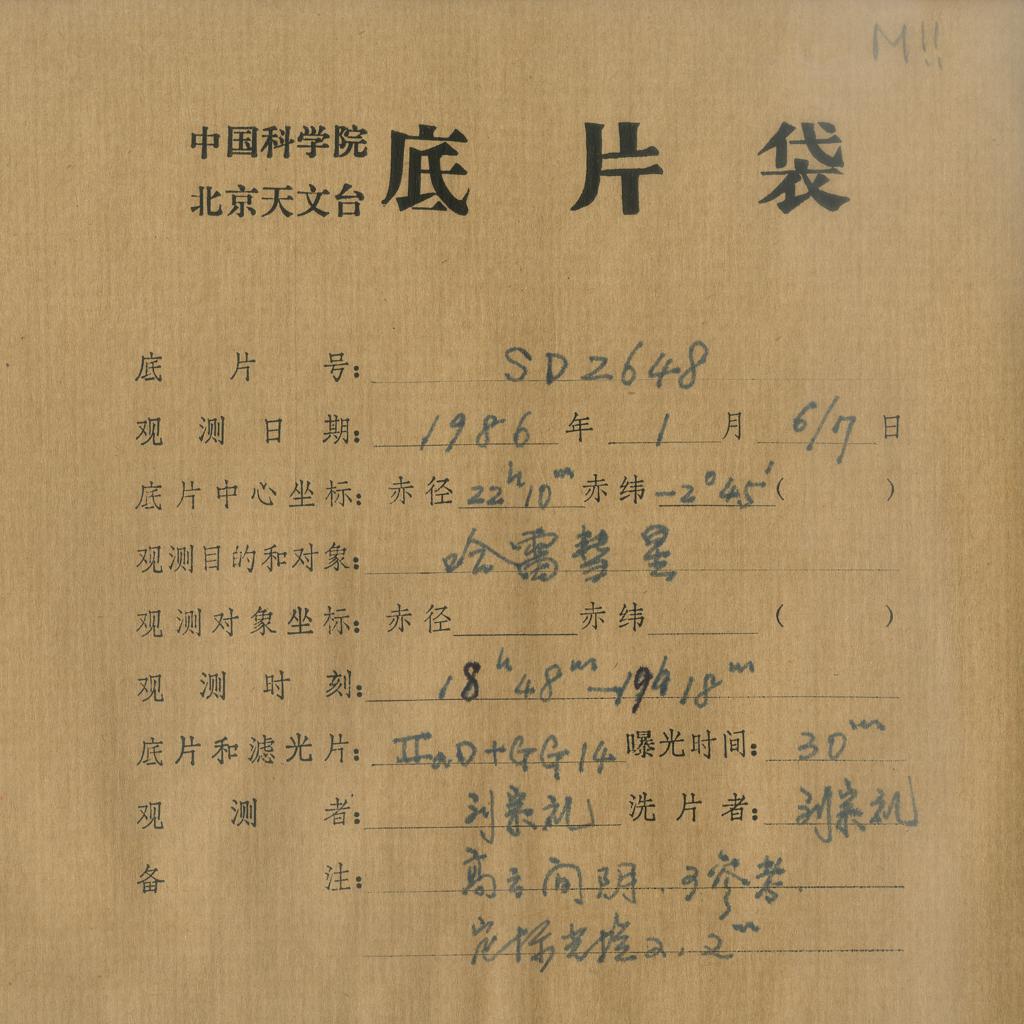 M!!
中国科学院
北京天文台 底片袋
底片号: SD2648
观测日期: 1986年1月6/7日
底片中心坐标: 赤径22ʰ10ᵐ赤纬-2°45′( )
观测目的和对象: 哈雷彗星
观测对象坐标: 赤径 赤纬 ( )
观测时刻: 18ʰ48ᵐ—19ʰ18ᵐ
底片和滤光片: IIaD+GG14 曝光时间: 30ᵐ
观测者: 刘宗礼 洗片者: 刘宗礼
备注: 高云间阴.可参考.
定标光楔2.2ᵐ